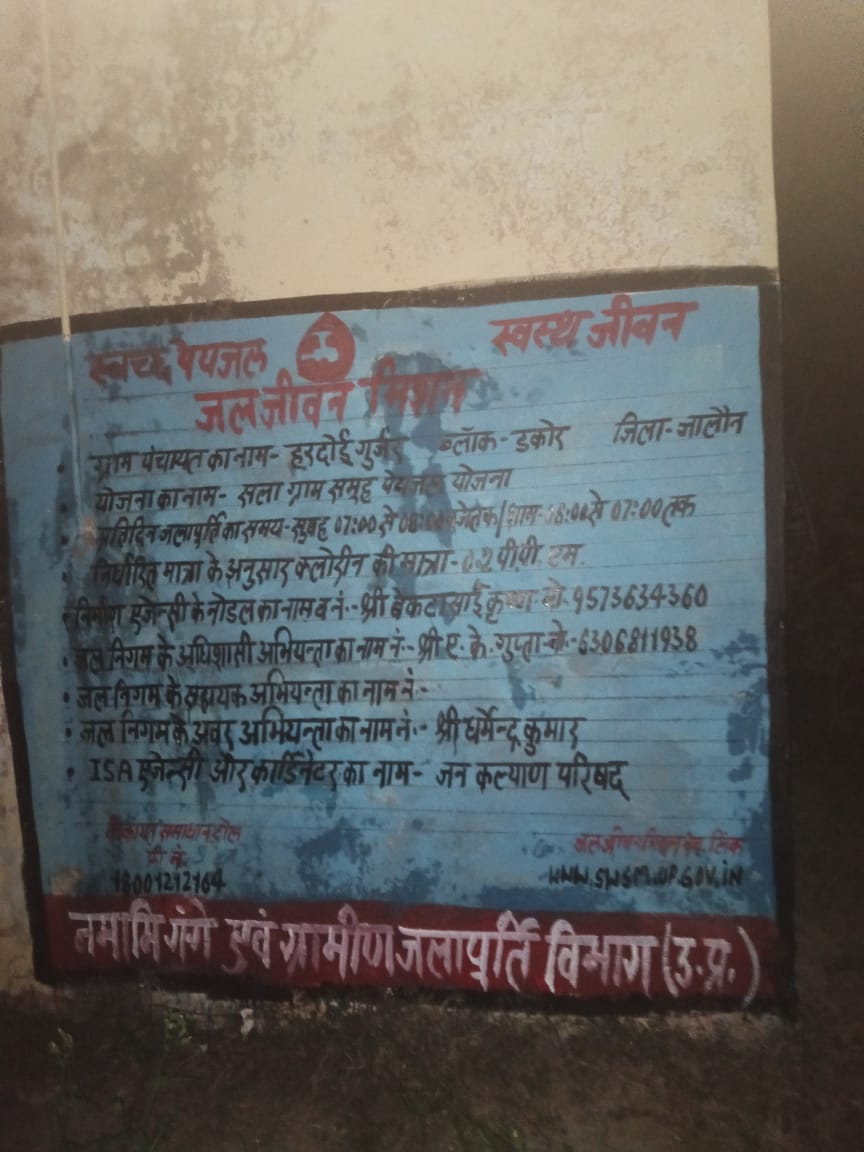 स्वच्छ पेयजल स्वस्थ जीवन
जल जीवन मिशन
ग्राम पंचायत का नाम- हरदोई गुर्जर ब्लॉक- डकोर जिला- जालौन
योजना का नाम- सला ग्राम समूह पेयजल योजना
प्रतिदिन जलापूर्ति का समय- सुबह 07:00 से 08:00 बजे तक/शाम- 06:00 से 07:00 तक
निर्धारित मात्रा के अनुसार क्लोरीन की मात्रा- 0.2 पी.पी. एम.
निर्माण एजेन्सी के नोडल का नाम व नं.- श्री वेंकटा साई कृष्णा मो. 9573634360
जल निगम के अधिशासी अभियन्ता का नाम नं.- श्री ए. के. गुप्ता मो.- 6306811938
जल निगम के सहायक अभियन्ता का नाम नं.-
जल निगम के अवर अभियन्ता का नाम नं.- श्री धर्मेन्द्र कुमार
ISA एजेन्सी और कार्डिनेटर का नाम- जन कल्याण परिषद्
शिकायत समाधान टोल जल जीवन मिशन वेब लिंक
फ्री नं.
18001212164 WWW.SWSM.UP.GOV.IN
नमामि गंगे एवं ग्रामीण जलापूर्ति विभाग (उ.प्र.)